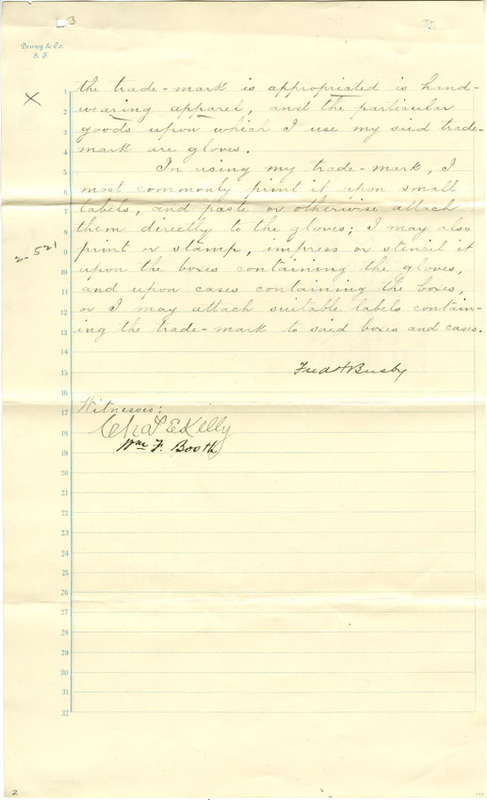 3
Dewey & Co.
S. F.
X
1 the trade-mark is appropriated is hand-
2 wearing apparel, and the particular
3 goods upon which I use my said trade-
4 mark are gloves.
5 In using my trade-mark, I
6 most commonly print it upon small
7 labels, and paste or otherwise attach
8 them directly to the gloves; I may also
2-521
9 print or stamp, impress or stencil it
10 upon the boxes containing the gloves,
11 and upon cases containing the boxes,
12 or I may attach suitable labels contain-
13 ing the trade-mark to said boxes and cases.
14
15 Fred H Busby
16
17 Witnesses:
18 Chas E Kelly
19 Wm F. Booth
20
21
22
23
24
25
26
27
28
29
30
31
32
2